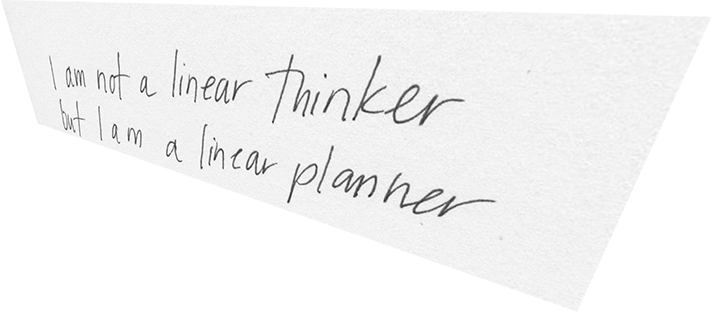 I am not a linear thinker
but I am a linear planner